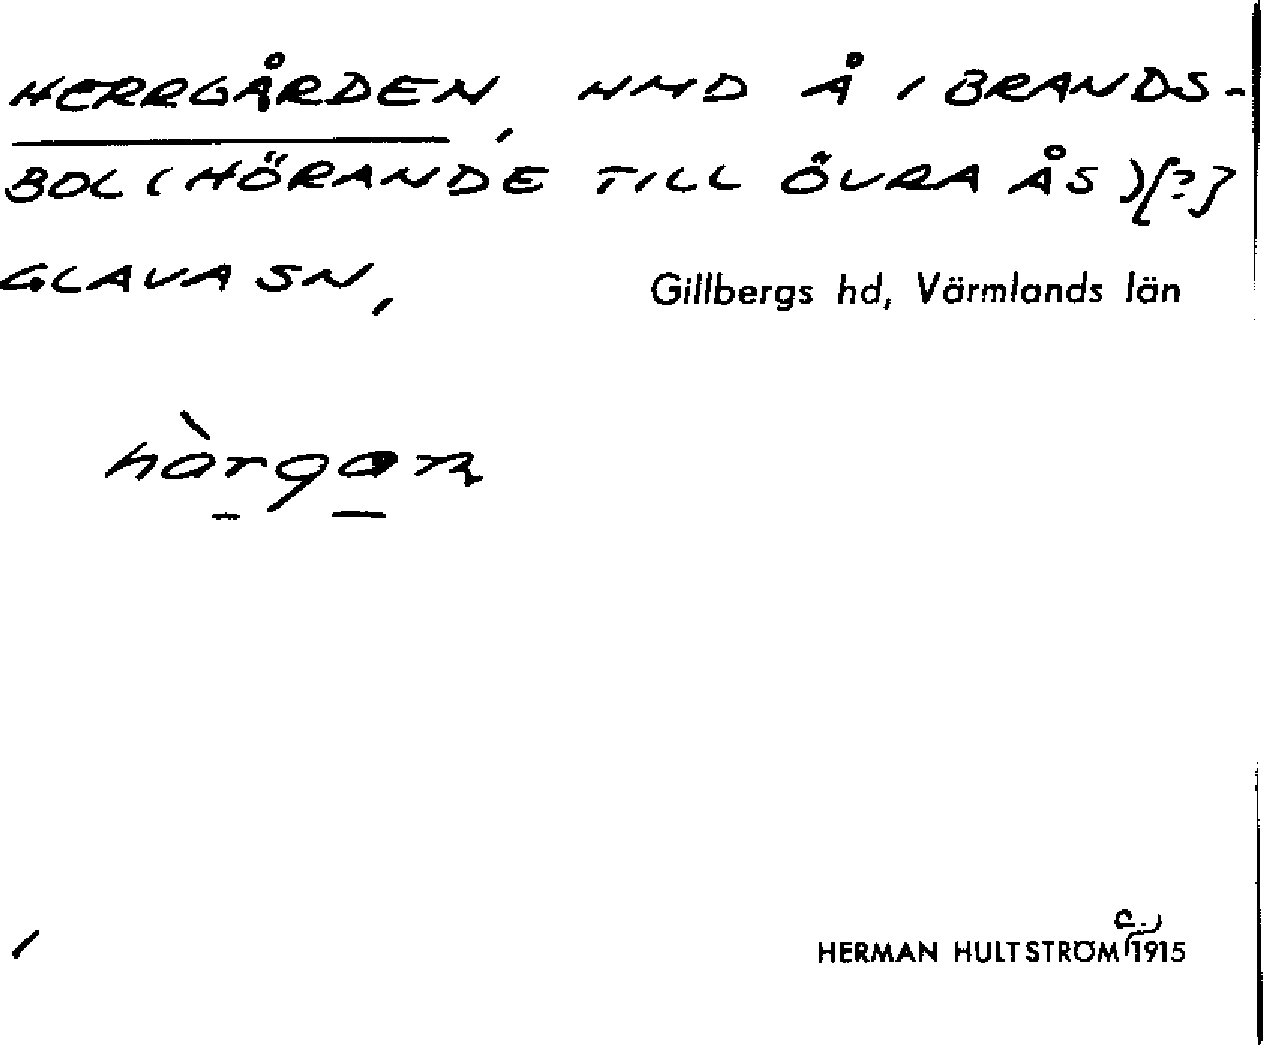 HERRGÅRDEN, HMD Å I BRANDS-
BOL (HÖRANDE TILL ÖVRA ÅS)[?]
GLAVA SN, Gillbergs hd, Värmlands län
hàrgan
HERMAN HULTSTRÖM c. 1915